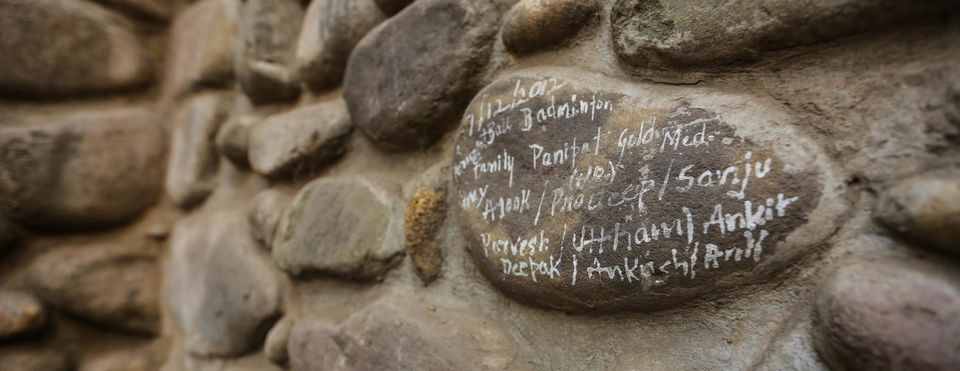 7/12/2012
Ball Badminton
Family Panipat Gold Med.
Ashok / Pradeep / Sanju
Parvesh / Uttham / Ankit
Deepak / Ankush / Anil